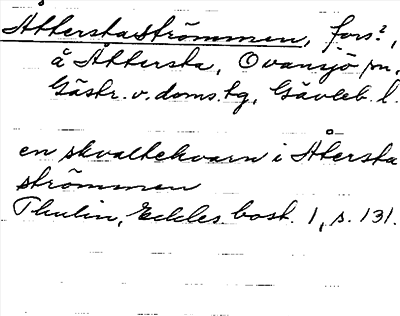 Åtterstaströmmen, fors?,
å Åttersta, Ovansjö sn,
Gästr. v. doms.tg, Gävleb. l.
en skvaltekvarn i Återsta
strömmen
Thulin, Eckles. bost. 1, s. 131.